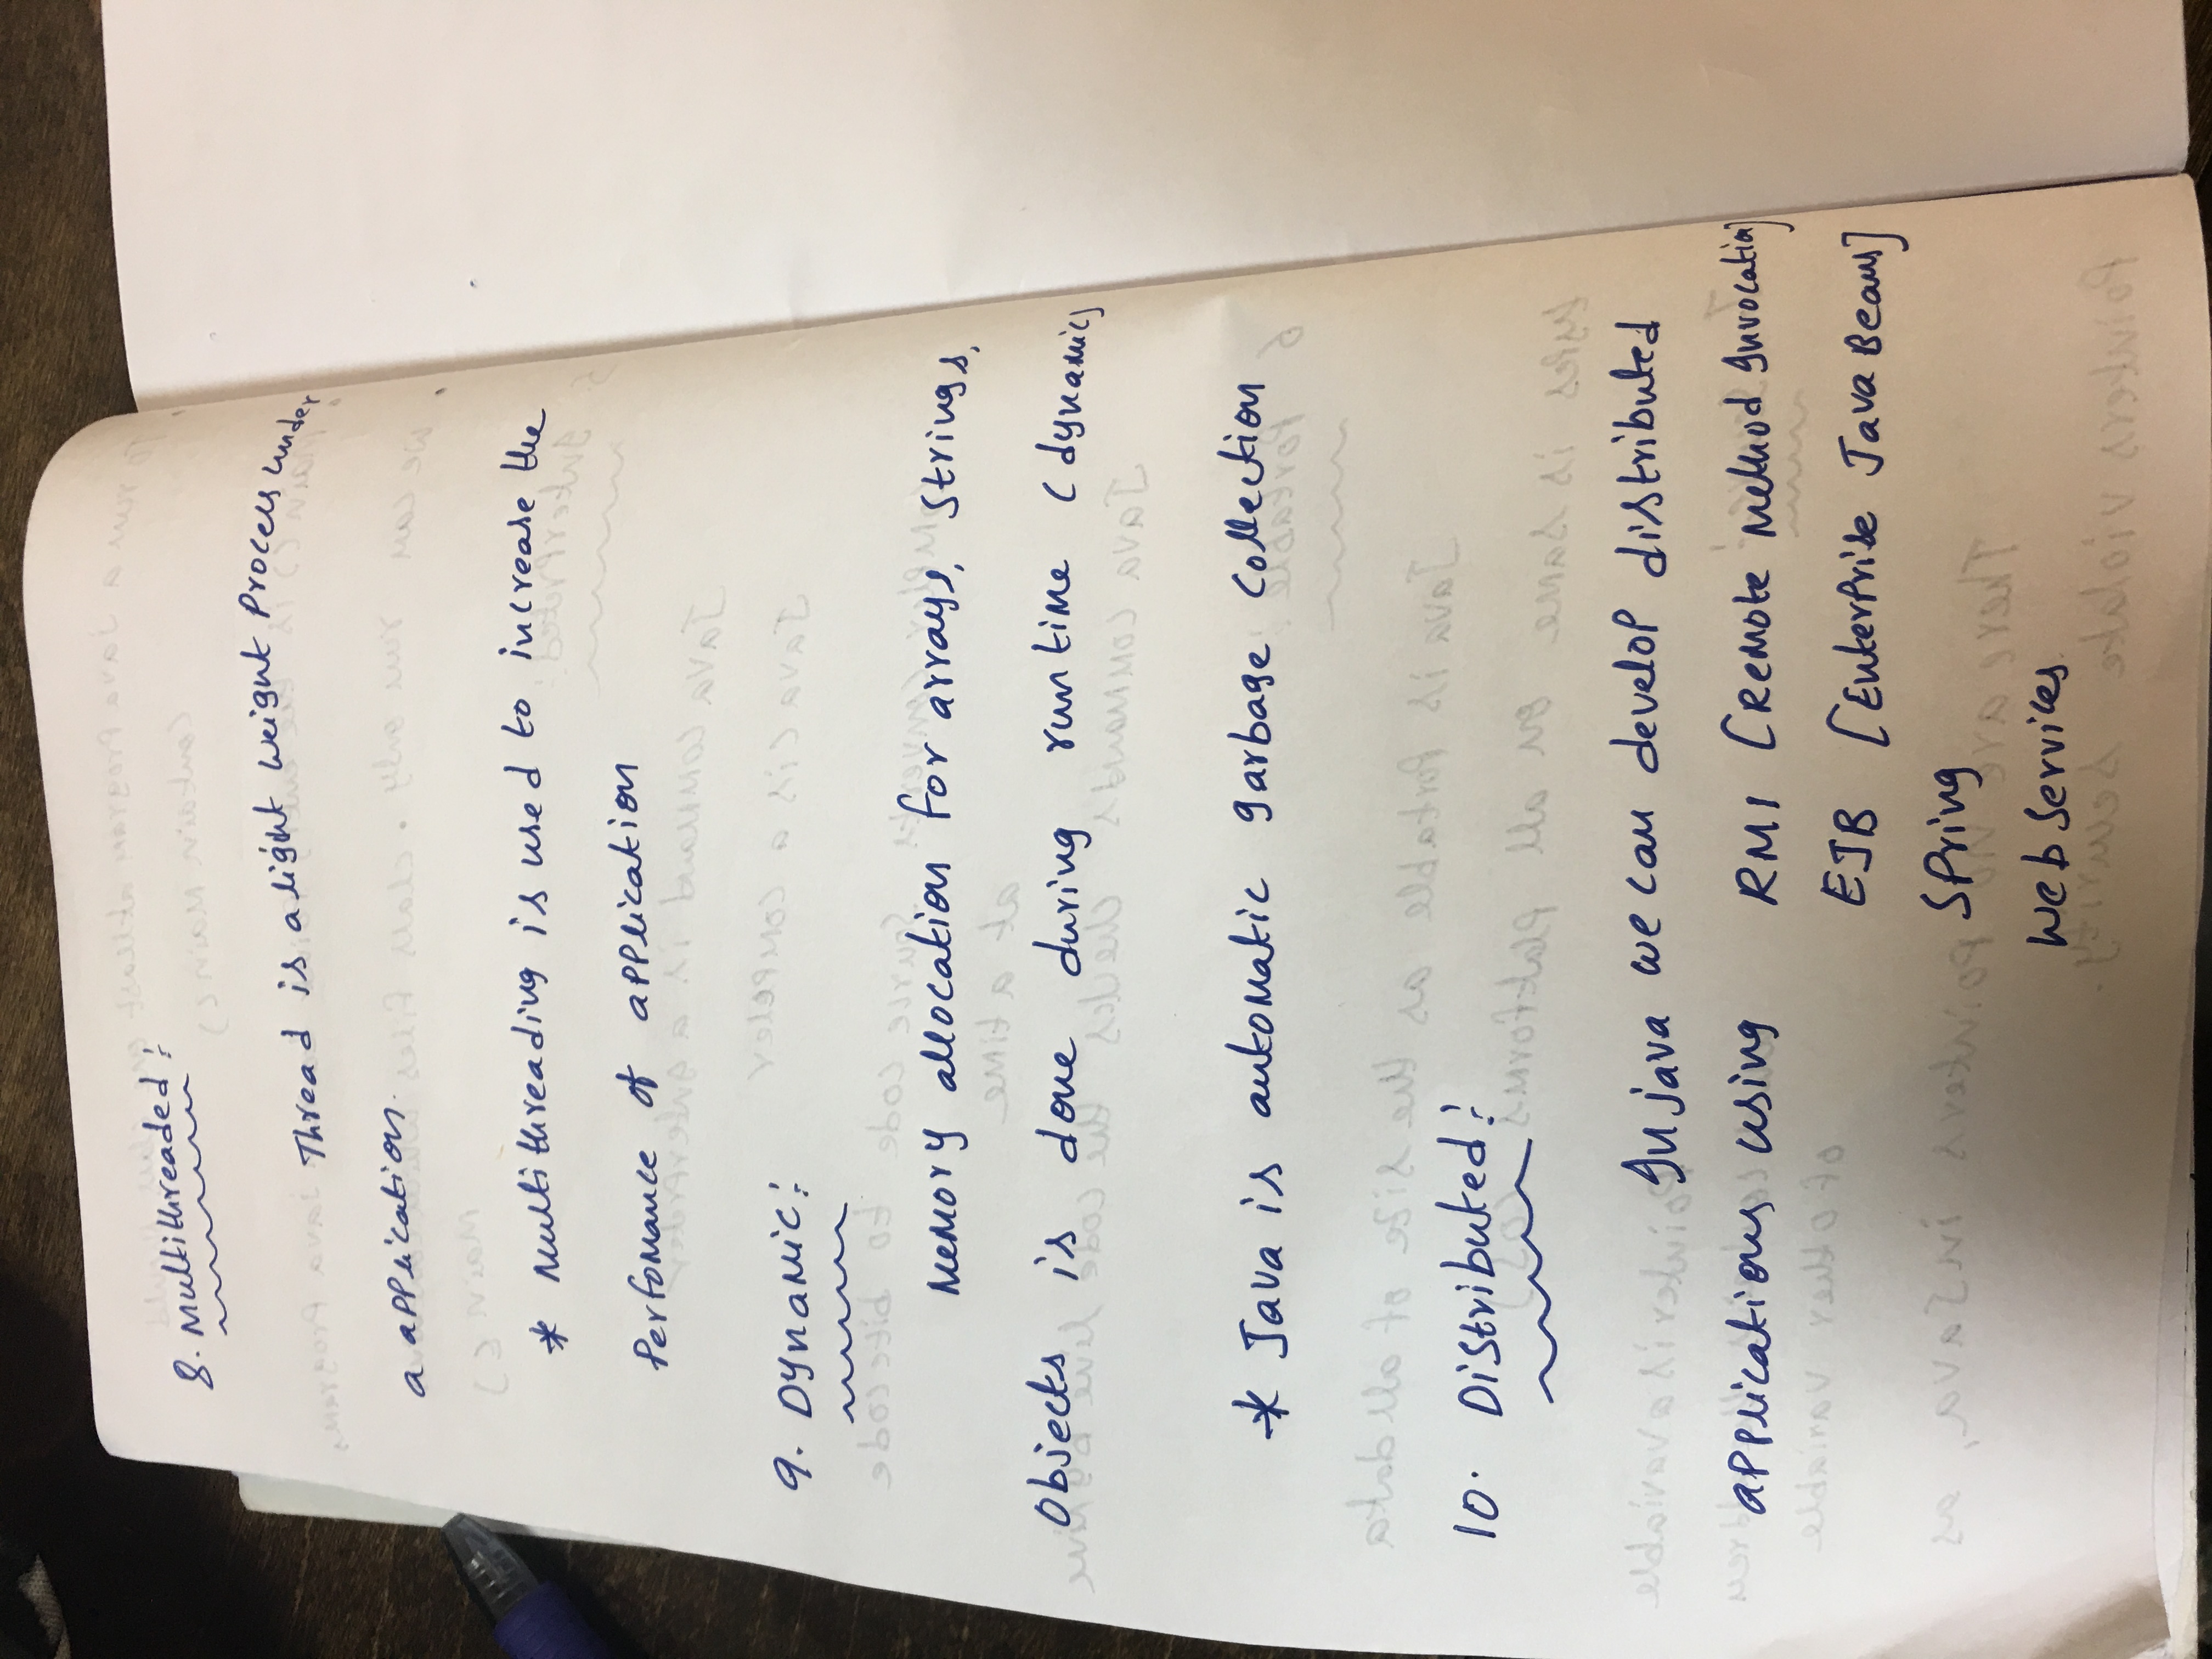 8. Multithreaded:
Thread is a light weight Process under
a application.
* Multithreading is used to increase the
Perfomance of application
9. Dynamic:
Memory allocation for arrays, Strings,
Objects is done during runtime (dynamic)
* Java is automatic garbage collection
10. Distributed:
In java we can develop distributed
applications using RMI [Remote Method Invocation]
EJB [Enterprise Java Beans]
Spring
Web Services